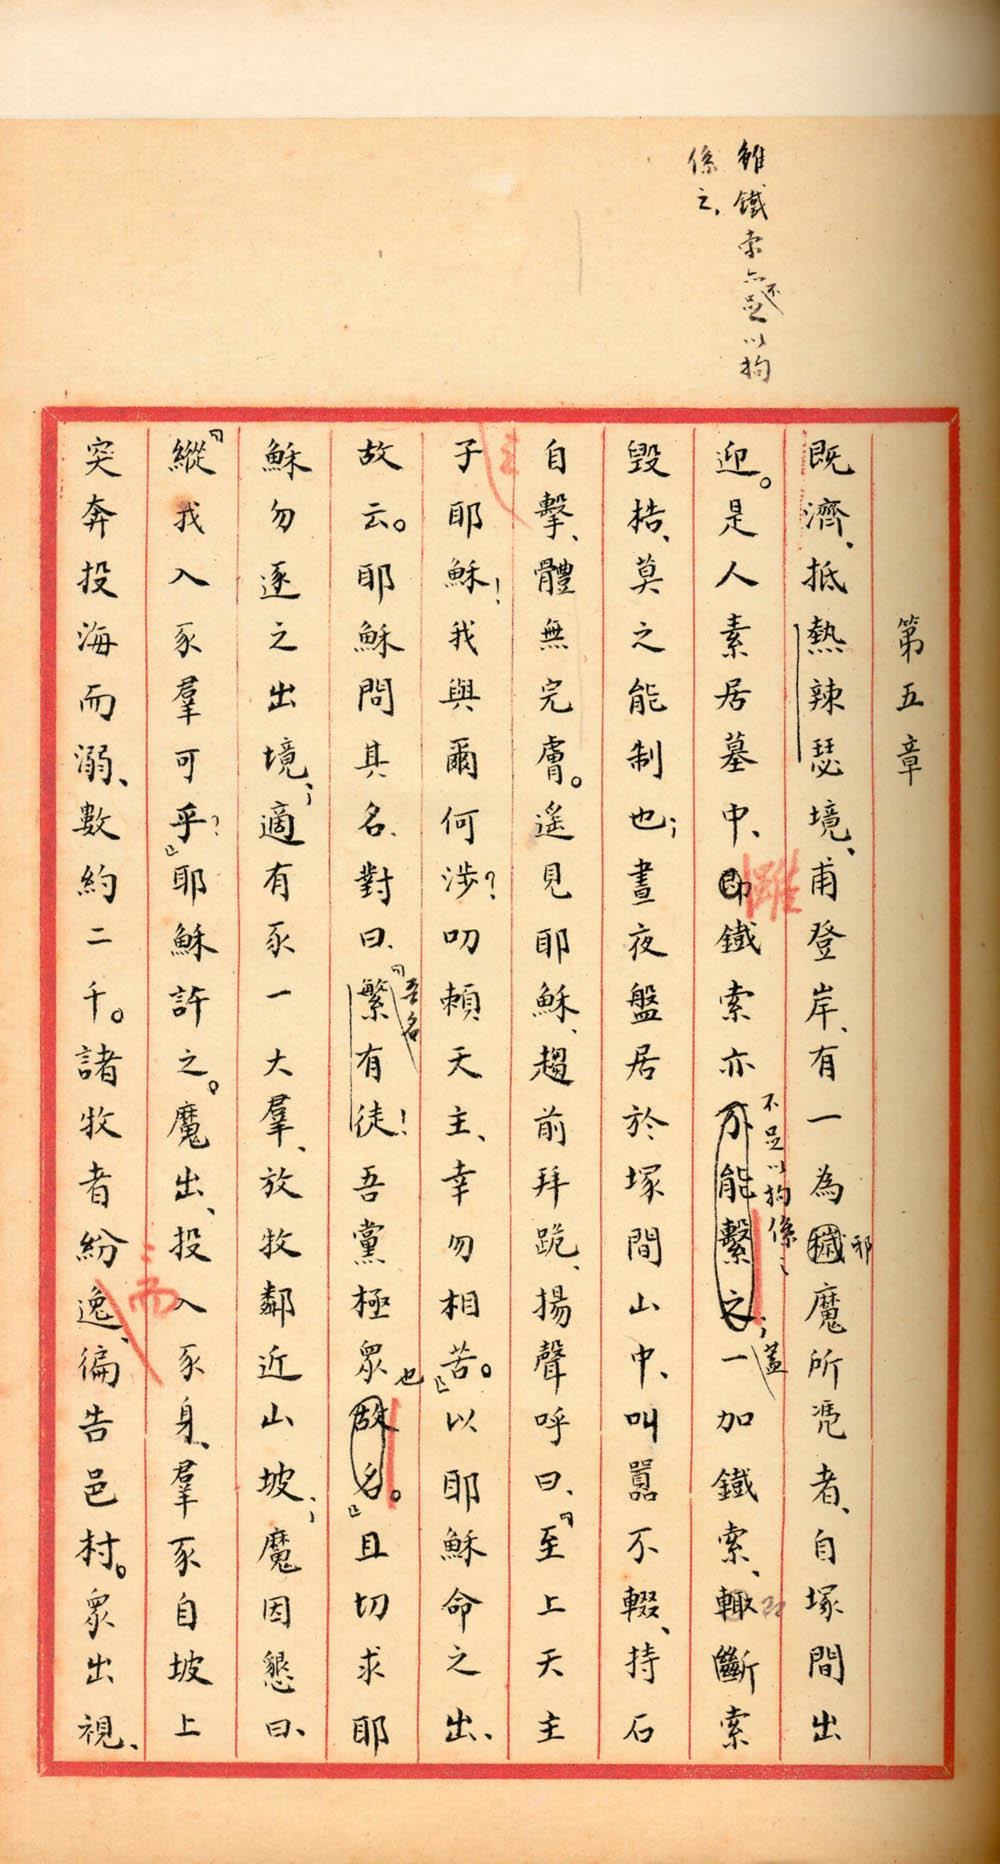 雖鐵索亦不足以拘
係之、
第五章
既濟、抵熱辣瑟境、甫登岸、有一為穢魔所憑者、自塚間出
邪
迎。是人素居墓中、即鐵索亦不能繫之；一加鐵索、輒斷索
雖
不足以拘係、
蓋
毀梏、莫之能制也；晝夜盤居於塚間山中、叫囂不輟、持石
自擊、體無完膚。遙見耶穌、趨前拜跪、揚聲呼曰、『至上天主
子耶穌！我與爾何涉？叨賴天主、幸勿相苦。』以耶穌命之出、
故云。耶穌問其名、對曰、『繁有徒！吾黨極眾故名。』且切求耶
吾名
也
穌勿逐之出境；適有豕一大羣、放牧鄰近山坡；魔因懇曰、
『縱我入豕羣可乎？』耶穌許之。魔出、投入豕身、羣豕自坡上
突奔投海而溺、數約二千。諸牧者紛逸、徧告邑村。眾出視、
而